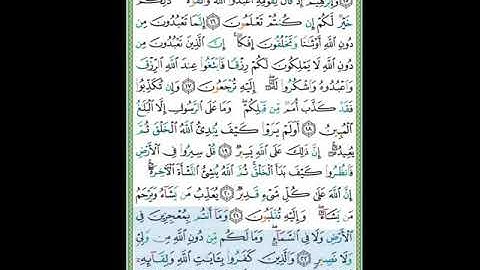 وَإِبۡرَٰهِيمَ إِذۡ قَالَ لِقَوۡمِهِ ٱعۡبُدُواْ ٱللَّهَ وَٱتَّقُوهُۖ ذَٰلِكُمۡ
خَيۡرٞ لَّكُمۡ إِن كُنتُمۡ تَعۡلَمُونَ ١٦ إِنَّمَا تَعۡبُدُونَ مِن
دُونِ ٱللَّهِ أَوۡثَٰنٗا وَتَخۡلُقُونَ إِفۡكًاۚ إِنَّ ٱلَّذِينَ تَعۡبُدُونَ مِن
دُونِ ٱللَّهِ لَا يَمۡلِكُونَ لَكُمۡ رِزۡقٗا فَٱبۡتَغُواْ عِندَ ٱللَّهِ ٱلرِّزۡقَ
وَٱعۡبُدُوهُ وَٱشۡكُرُواْ لَهُۥٓۖ إِلَيۡهِ تُرۡجَعُونَ ١٧ وَإِن تُكَذِّبُواْ
فَقَدۡ كَذَّبَ أُمَمٞ مِّن قَبۡلِكُمۡۖ وَمَا عَلَى ٱلرَّسُولِ إِلَّا ٱلۡبَلَٰغُ
ٱلۡمُبِينُ ١٨ أَوَلَمۡ يَرَوۡاْ كَيۡفَ يُبۡدِئُ ٱللَّهُ ٱلۡخَلۡقَ ثُمَّ
يُعِيدُهُۥٓۚ إِنَّ ذَٰلِكَ عَلَى ٱللَّهِ يَسِيرٞ ١٩ قُلۡ سِيرُواْ فِي ٱلۡأَرۡضِ
فَٱنظُرُواْ كَيۡفَ بَدَأَ ٱلۡخَلۡقَۚ ثُمَّ ٱللَّهُ يُنشِئُ ٱلنَّشۡأَةَ ٱلۡأٓخِرَةَۚ
إِنَّ ٱللَّهَ عَلَىٰ كُلِّ شَيۡءٖ قَدِيرٞ ٢٠ يُعَذِّبُ مَن يَشَآءُ وَيَرۡحَمُ
مَن يَشَآءُۖ وَإِلَيۡهِ تُقۡلَبُونَ ٢١ وَمَآ أَنتُم بِمُعۡجِزِينَ فِي
ٱلۡأَرۡضِ وَلَا فِي ٱلسَّمَآءِۖ وَمَا لَكُم مِّن دُونِ ٱللَّهِ مِن وَلِيّٖ
وَلَا نَصِيرٖ ٢٢ وَٱلَّذِينَ كَفَرُواْ بِـَٔايَٰتِ ٱللَّهِ وَلِقَآئِهِۦٓ